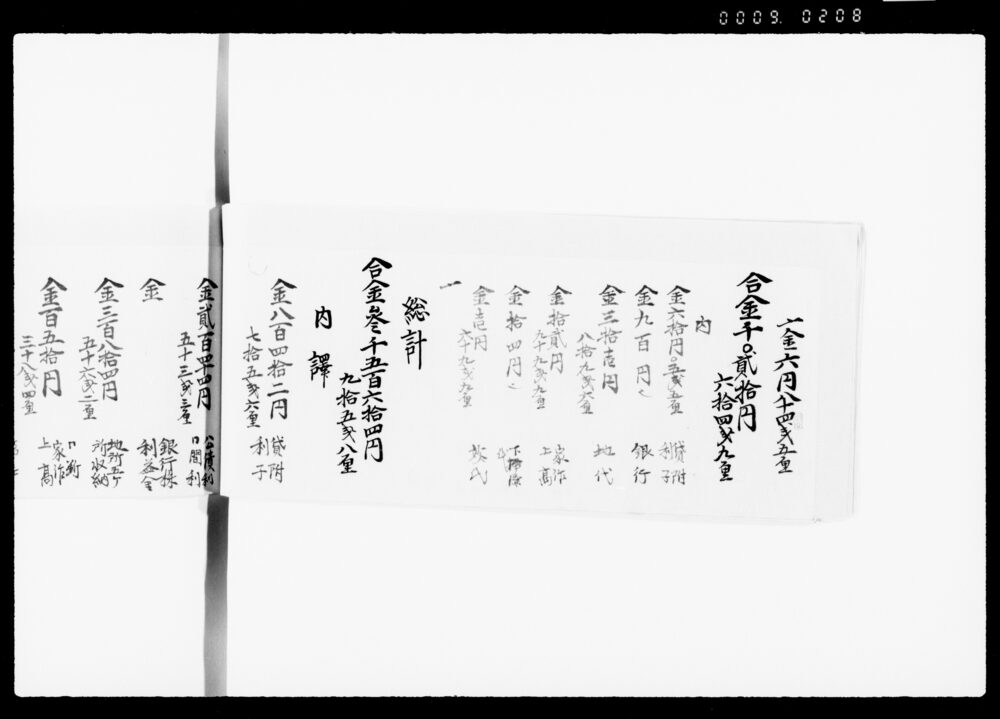 0009. 0208
一金六円八十四戋五厘
合金千〇貳拾円
六拾四戋九厘
内
金六拾円〇五戋五厘
貸附
利子
金九百円
銀行
金三拾壱円
八拾九戋六厘
地代
金拾貳円
九十九戋九厘
家作
上高
金拾四円
下掃除
金壱円
六十九戋九厘
一
総計
合金参千五百六拾四円
九拾五戋八厘
内譯
金八百四拾二円
七拾五戋六厘
貸附
利子
金貳百四十四円
五十三戋三厘
公債利
金
銀行株
利益金
金三百八拾四円
五十六戋二厘
地所
所収納
金百五拾円
三十八戋四厘
家作
上高